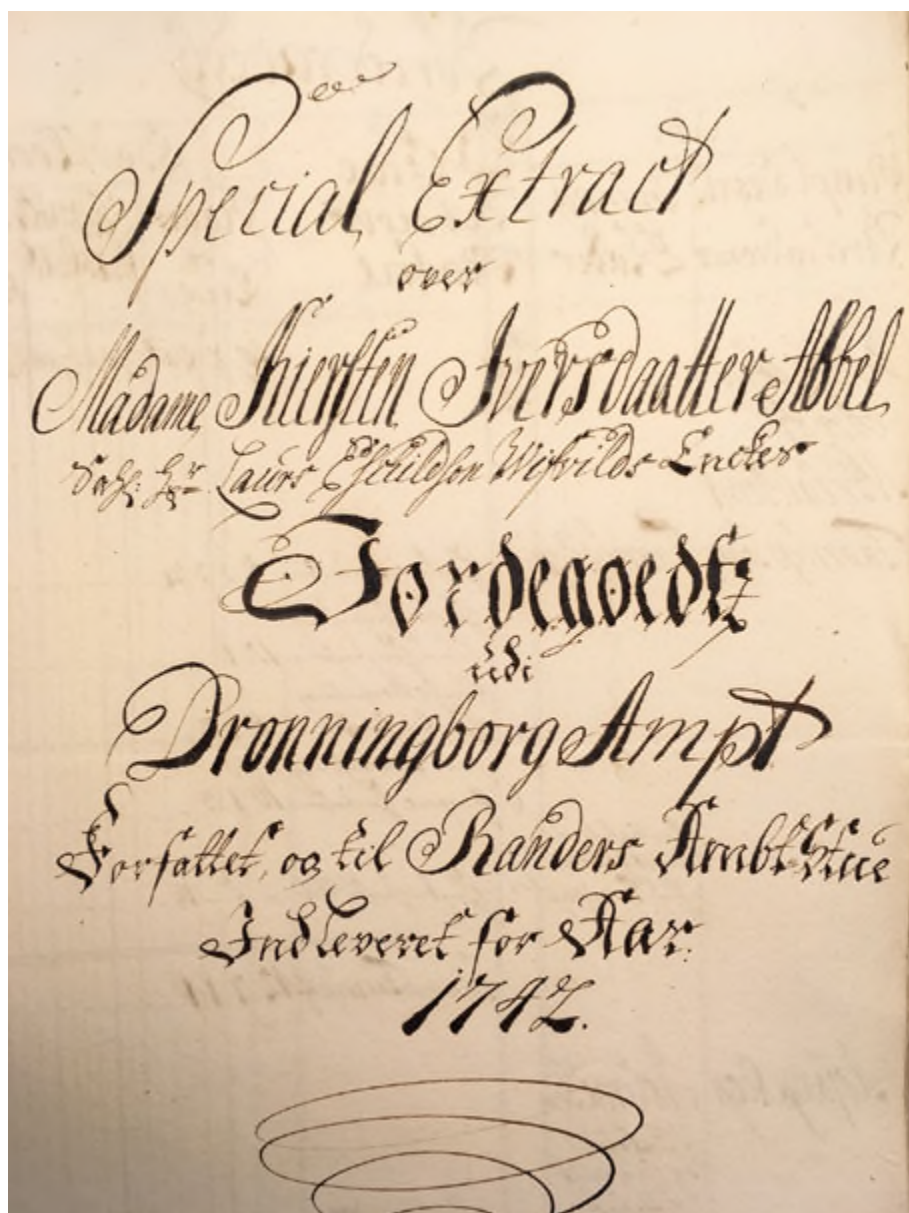 Special Extract
over
Madame Kiersten Iversdaatter Abbel
Sahl: Hr: Laurs Eschildsøn Wisvilds Enckes
Jordegoedtz
udi
Dronningborg Ampt
Forfattet, og til Randers Ambt Stue
Indleveret for Aar
1742.